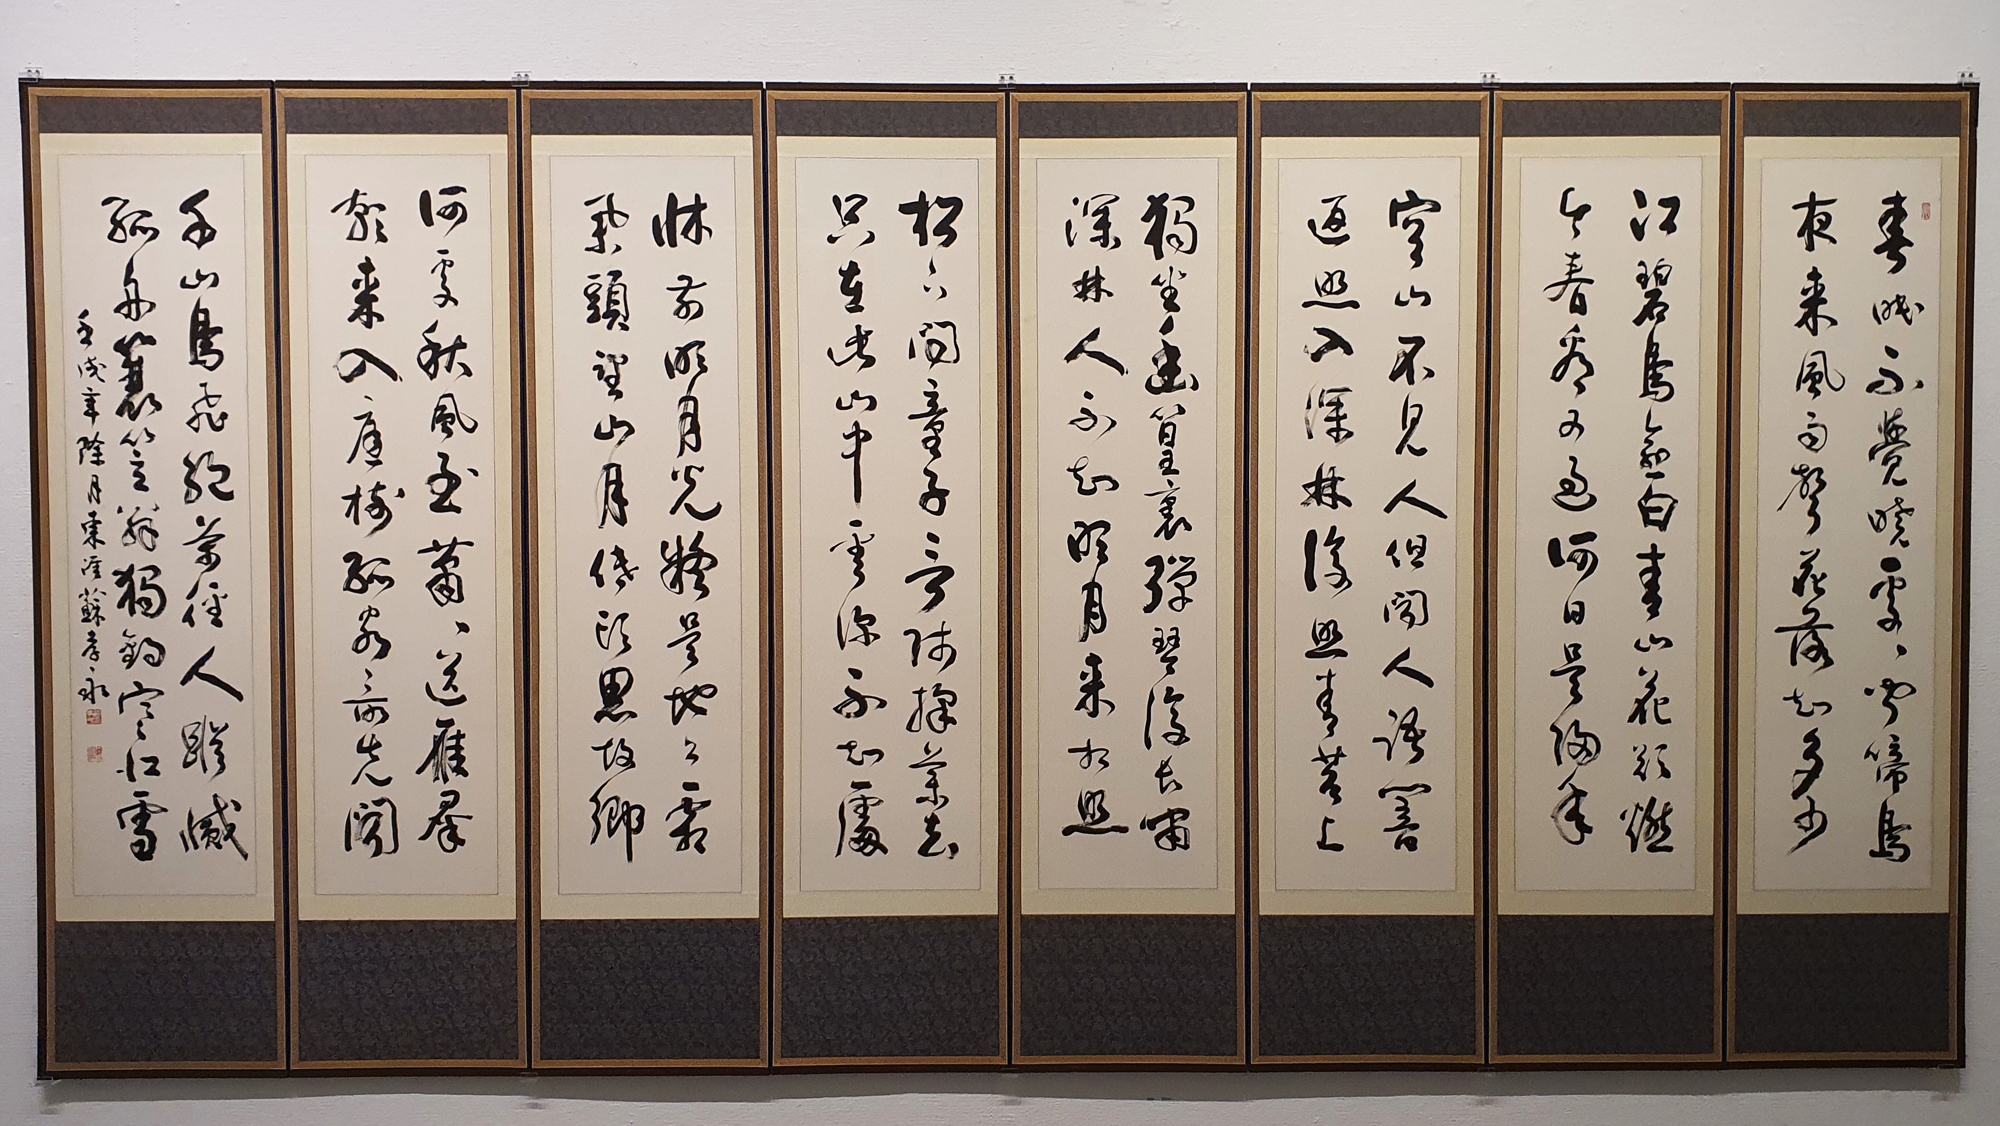 春眠不覺曉處〻聞啼鳥
夜来風雨聲花落知多少
江碧鳥逾白青山花欲燃
今春看又過何日是歸年
空山不見人但聞人語響
返照入深林復照青苔上
獨坐幽篁裏彈琴復長嘯
深林人不知明月来相照
松下問童子言師採藥去
只在此山中雲深不知處
牀前明月光疑是地上霜
擧頭望山月低頭思故鄉
何處秋風至蕭〻送雁群
朝来入庭樹孤客最先聞
千山鳥飛絶萬徑人蹤滅
孤舟蓑笠翁獨釣寒江雪
壬戌年除月東涯蘇孝永